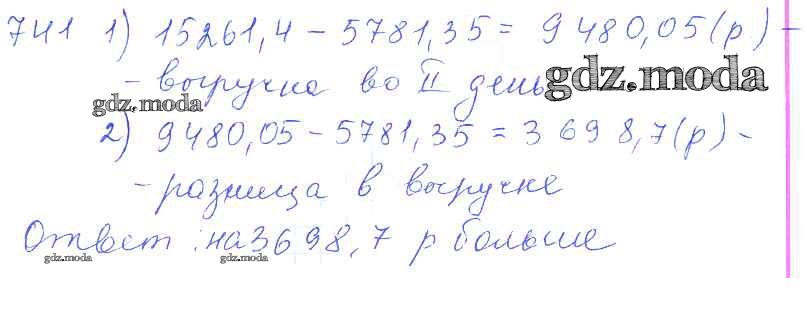 741 1) 15261,4 - 5781,35 = 9480,05(р) -
- выручка во II день
gdz.moda
gdz.moda
2) 9480,05 - 5781,35 = 3698,7(р) -
- разница в выручке
Ответ: на 3698,7 р больше
gdz.moda
gdz.moda
gdz.moda